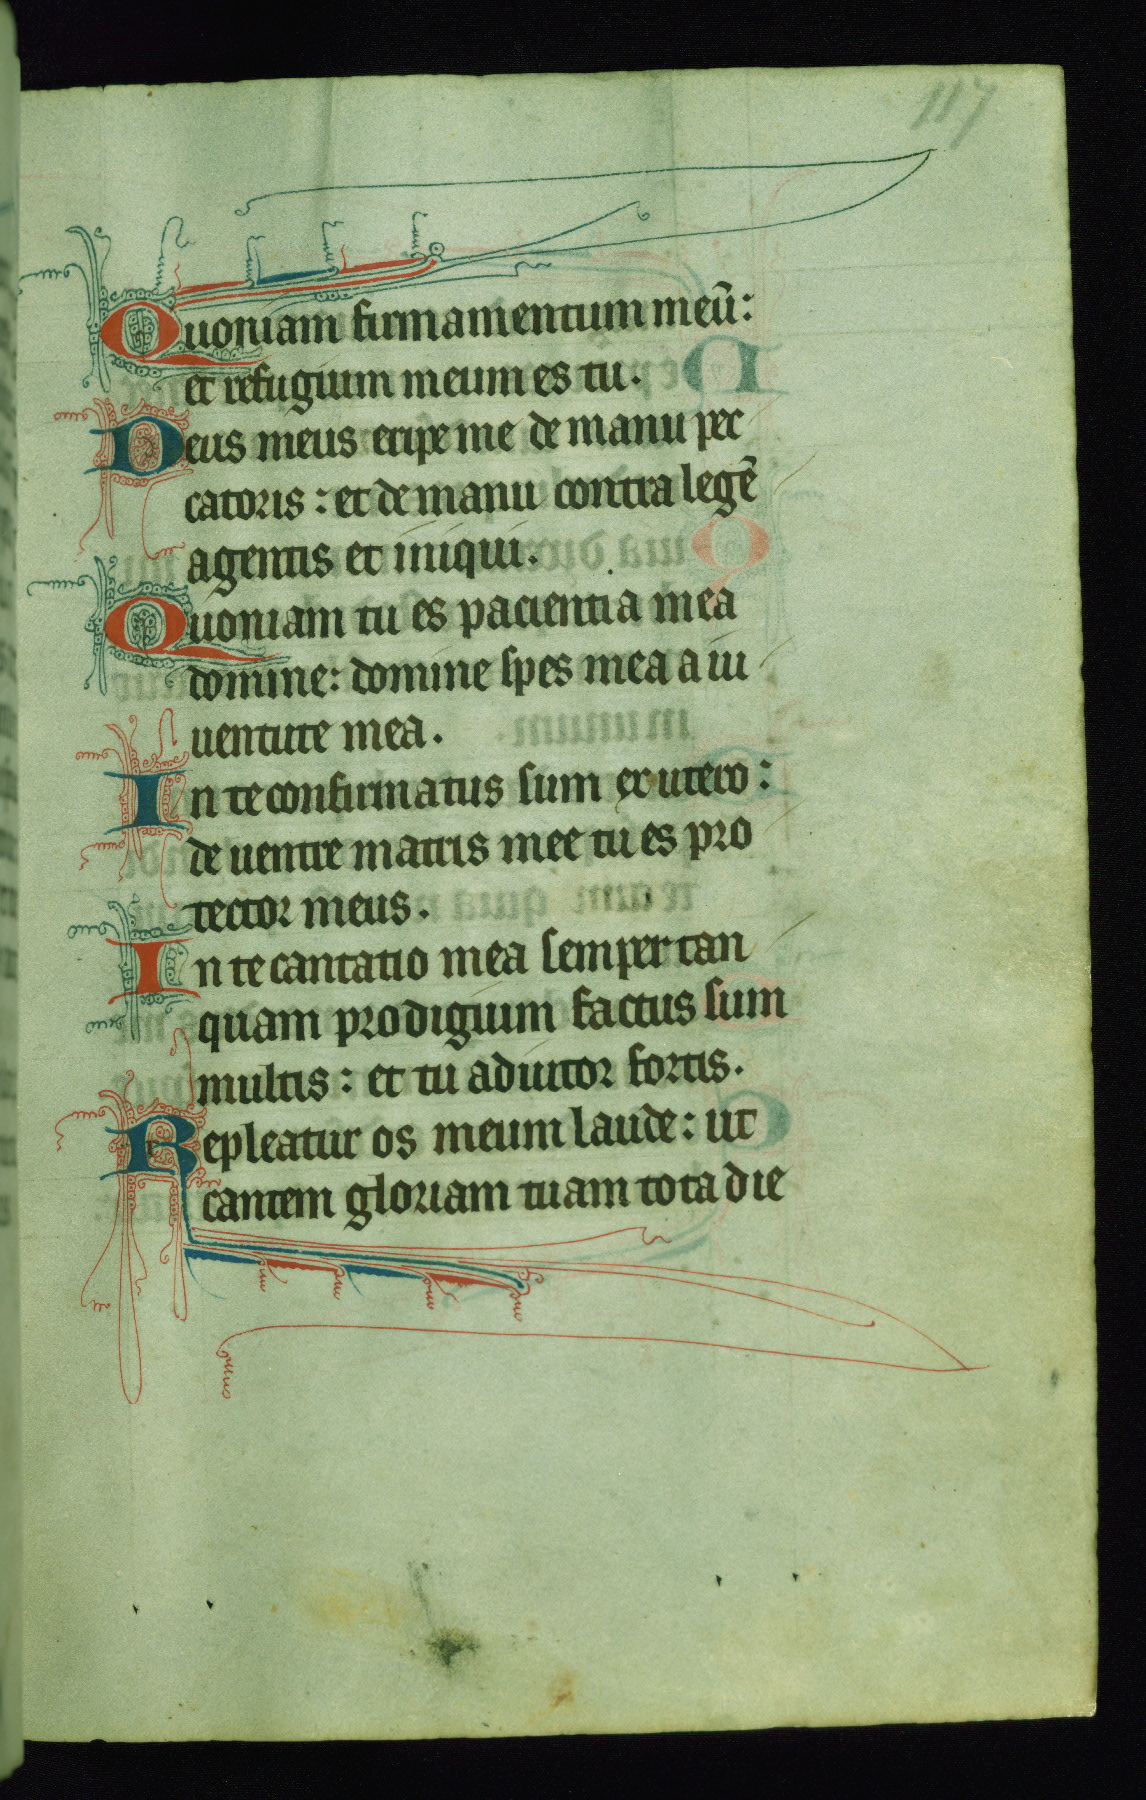 117
Quoniam firmamentum meū:
et refugium meum es tu.
Deus meus eripe me de manu pec
catoris: et de manu contra legē
agentis et iniqui.
Quoniam tu es paciencia mea
domine: domine spes mea a iu
uentute mea.
In te confirmatus sum ex utero:
de uentre matris mee tu es pro
tector meus.
In te cantatio mea semper tan
quam prodigium factus sum
multis: et tu adiutor fortis.
Repleatur os meum laude: ut
cantem gloriam tuam tota die